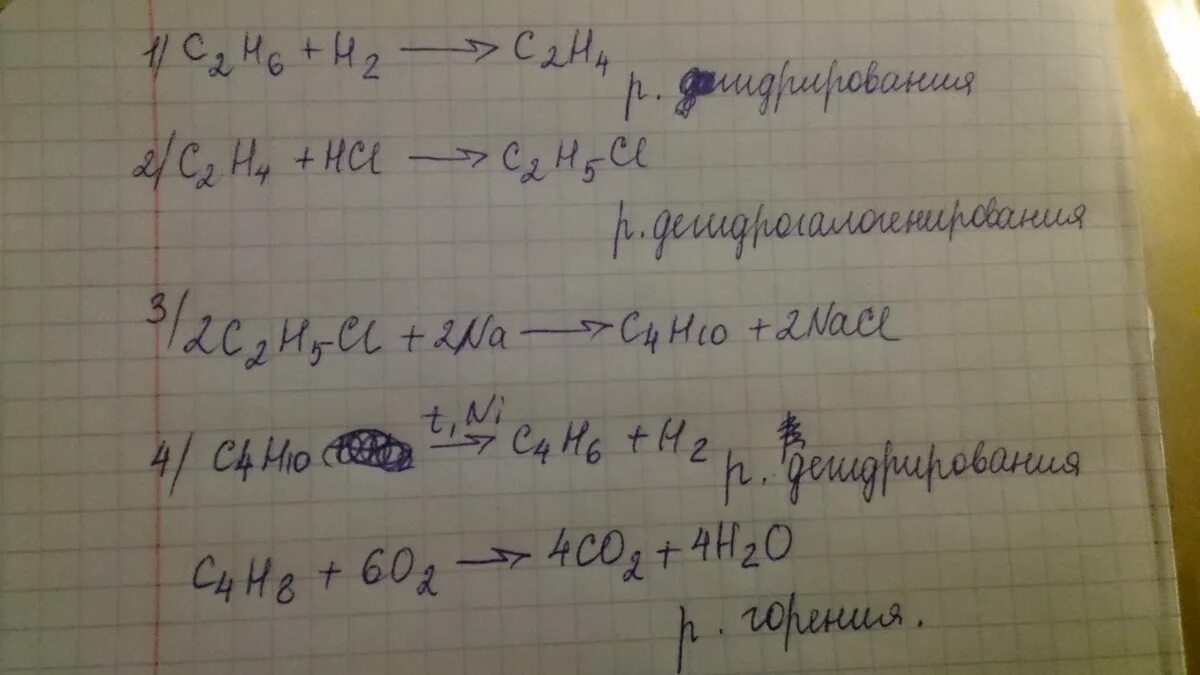 1) C₂H₆ + H₂ ⟶ C₂H₄
р. дегидрирования
2) C₂H₄ + HCl ⟶ C₂H₅Cl
р. дегидрогалогенирования
3) 2C₂H₅Cl + 2Na ⟶ C₄H₁₀ + 2NaCl
t, Ni
4) C₄H₁₀ ⟶ C₄H₆ + H₂ р. дегидрирования
C₄H₈ + 6O₂ ⟶ 4CO₂ + 4H₂O
р. горения.